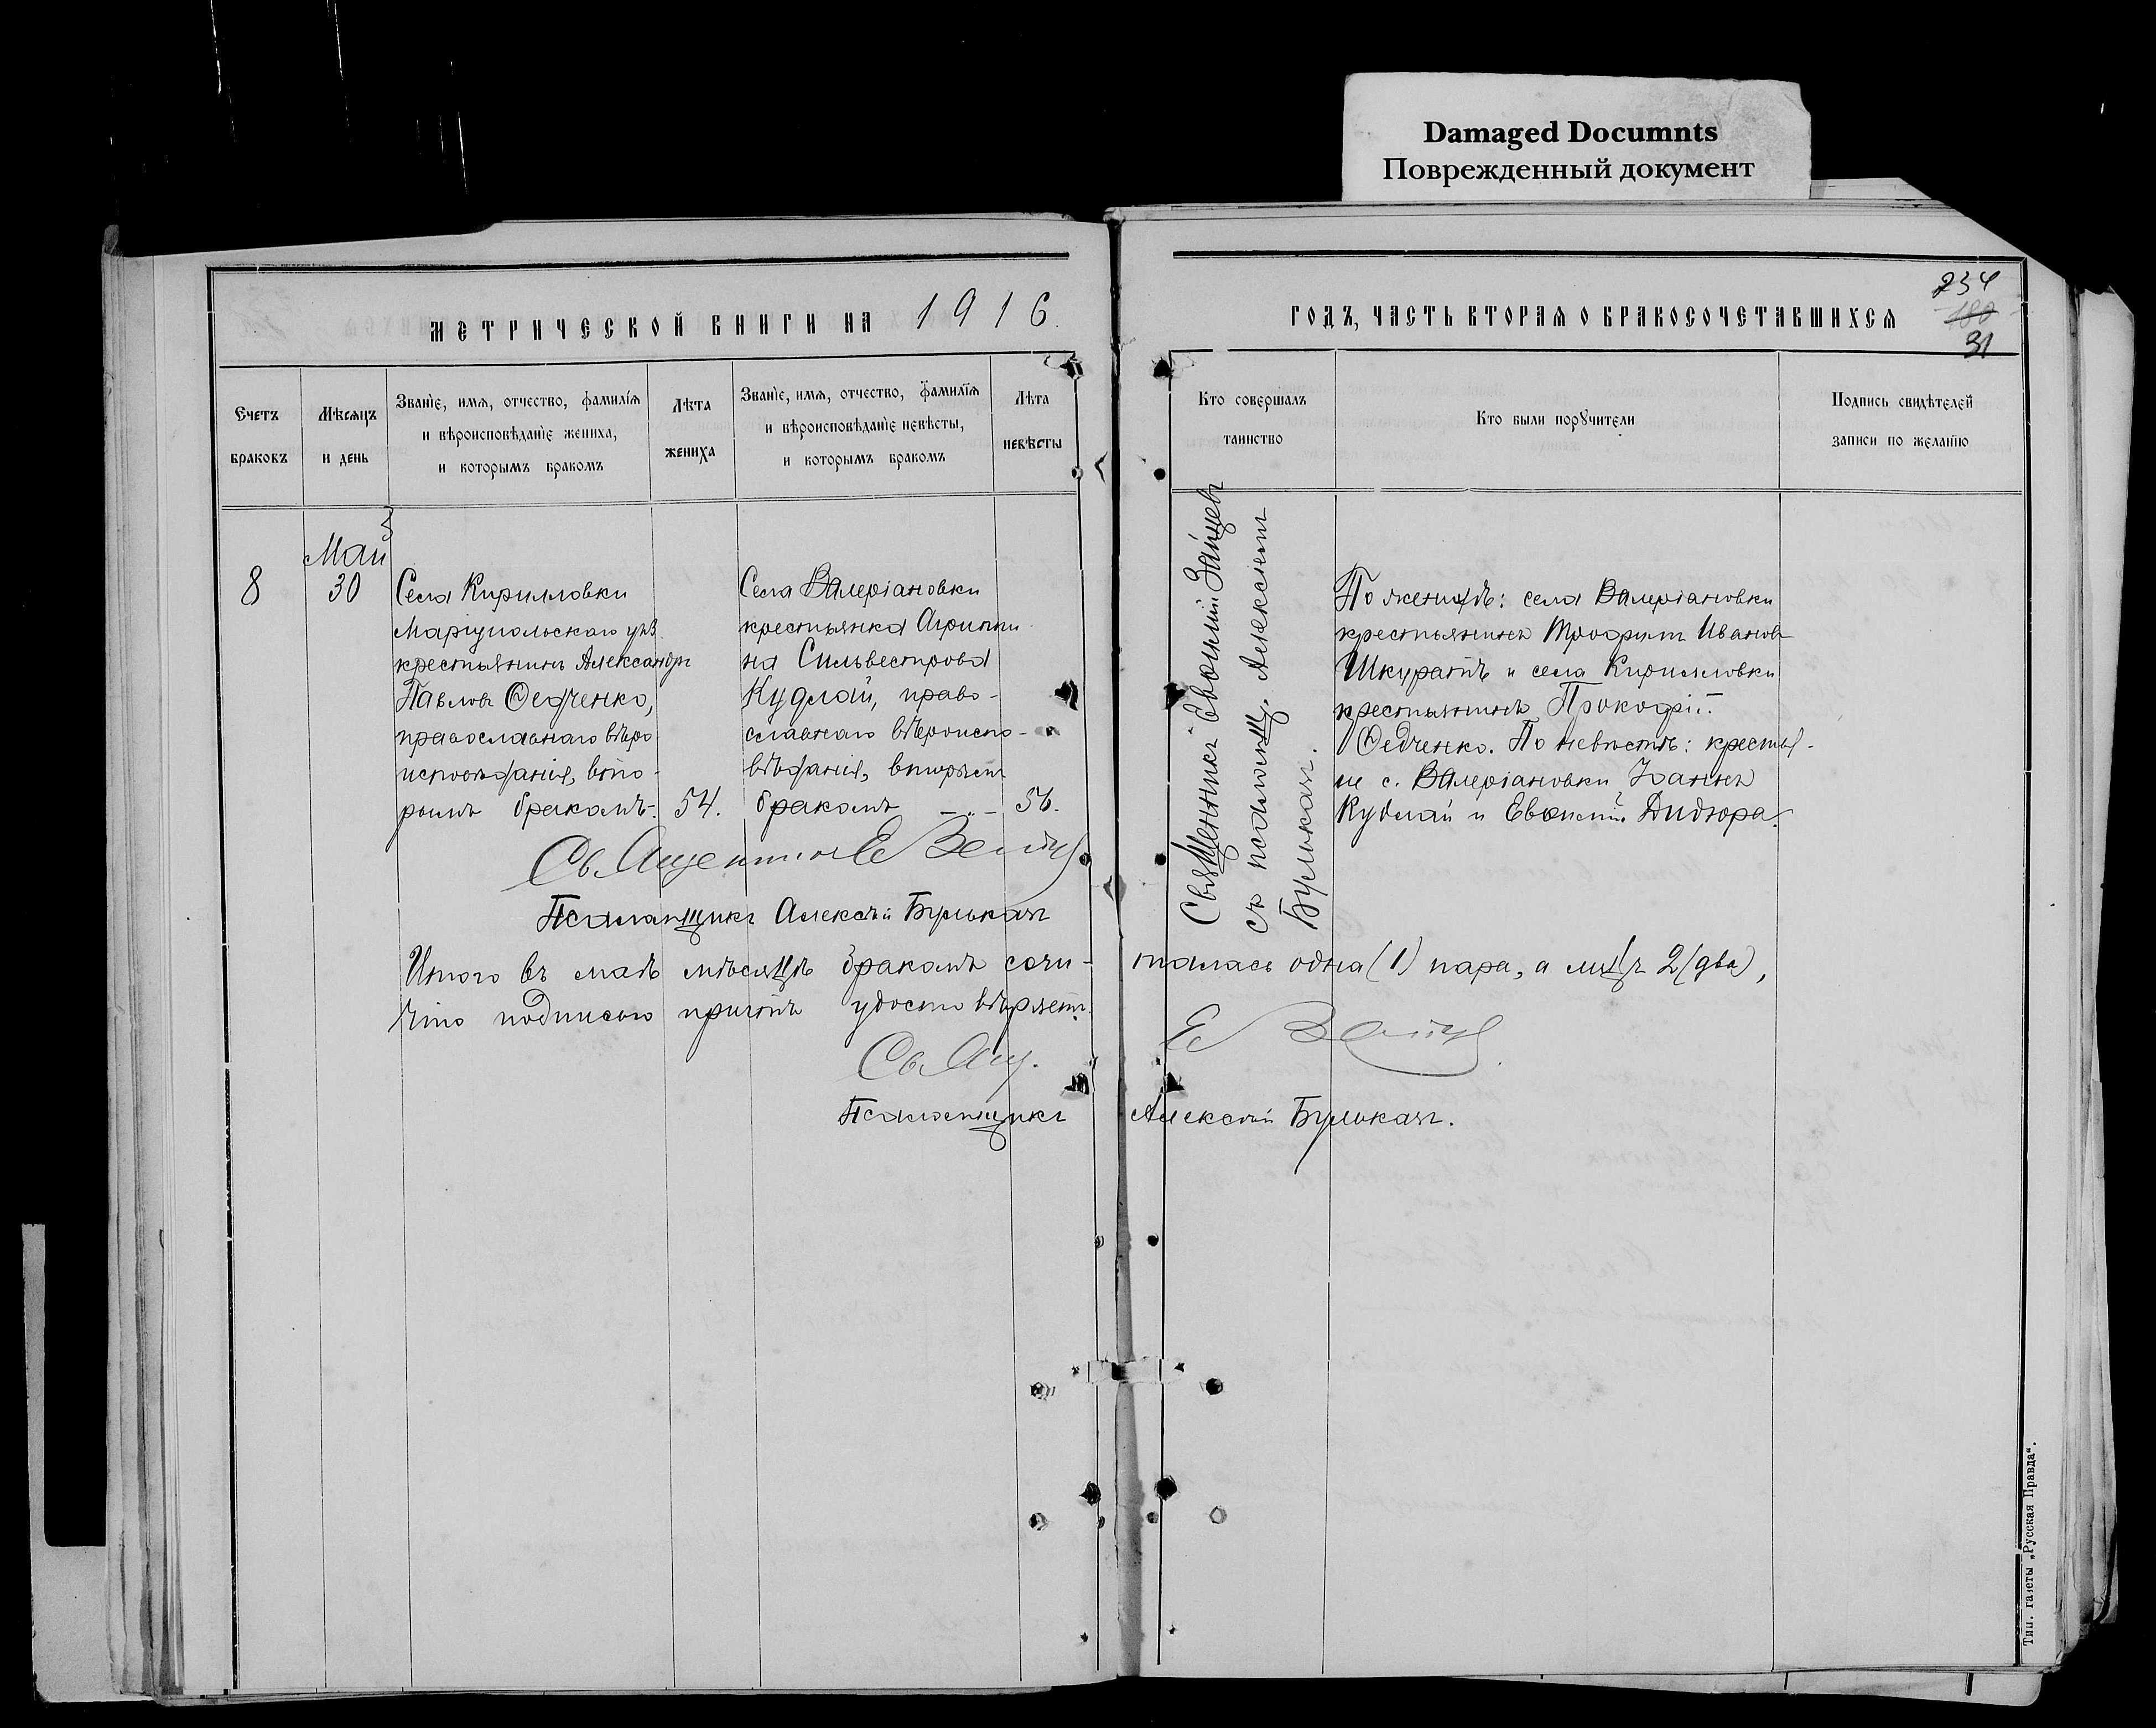 Damaged Documnts
Поврежденный документ
МЕТРИЧЕСКОЙ КНИГИ НА 1916
ГОДЪ, ЧАСТЬ ВТОРАЯ О БРАКОСОЧЕТАВШИХСЯ
234
180
31
Счетъ
браковъ
Мѣсяцъ
и день
Званїе, имя, отчество, фамилїя
и вѣроисповѣданїе жениха,
и которымъ бракомъ
Лѣта
жениха
Званїе, имя, отчество, фамилїя
и вѣроисповѣданїе невѣсты,
и которымъ бракомъ
Лѣта
невѣсты
Кто совершалъ
таинство
Кто были порꙋчители
Подпись свидѣтелей
записи по желанїю
8
Май
30
Села Кирилловки
Маріупольскаго уѣз.
крестьянинъ Александръ
Павловъ Ѳедченко,
православнаго вѣро
исповѣданія, вто-
рымъ бракомъ.
54.
Села Валеріановки
крестьянка Агриппи
на Сильвестрова
Кудлай, право-
славнаго вѣроиспо-
вѣданія, вторымъ
бракомъ
56.
Священникъ Евѳимій Зайцевъ
съ псаломщ. Алексіемъ
Булькачъ.
По женихѣ: села Валеріановки
крестьянинъ Трофимъ Ивановъ
Шкуратъ и села Кирилловки
крестьянинъ Прокофій
Ѳедченко. По невѣстѣ: крестья-
не с. Валеріановки Іоаннъ
Кудлай и Евѳимій Дидюра.
Священникъ Е Зайц
Псаломщикъ Алексѣй Булькачъ
Итого въ маѣ мѣсяцѣ бракомъ соче- талась одна (1) пара, а лицъ 2 (два),
что подписью причтъ удостовѣряетъ.
Свящ. Е Зайц
Псаломщикъ Алексѣй Булькачъ.
Тип. газеты „Русская Правда“.